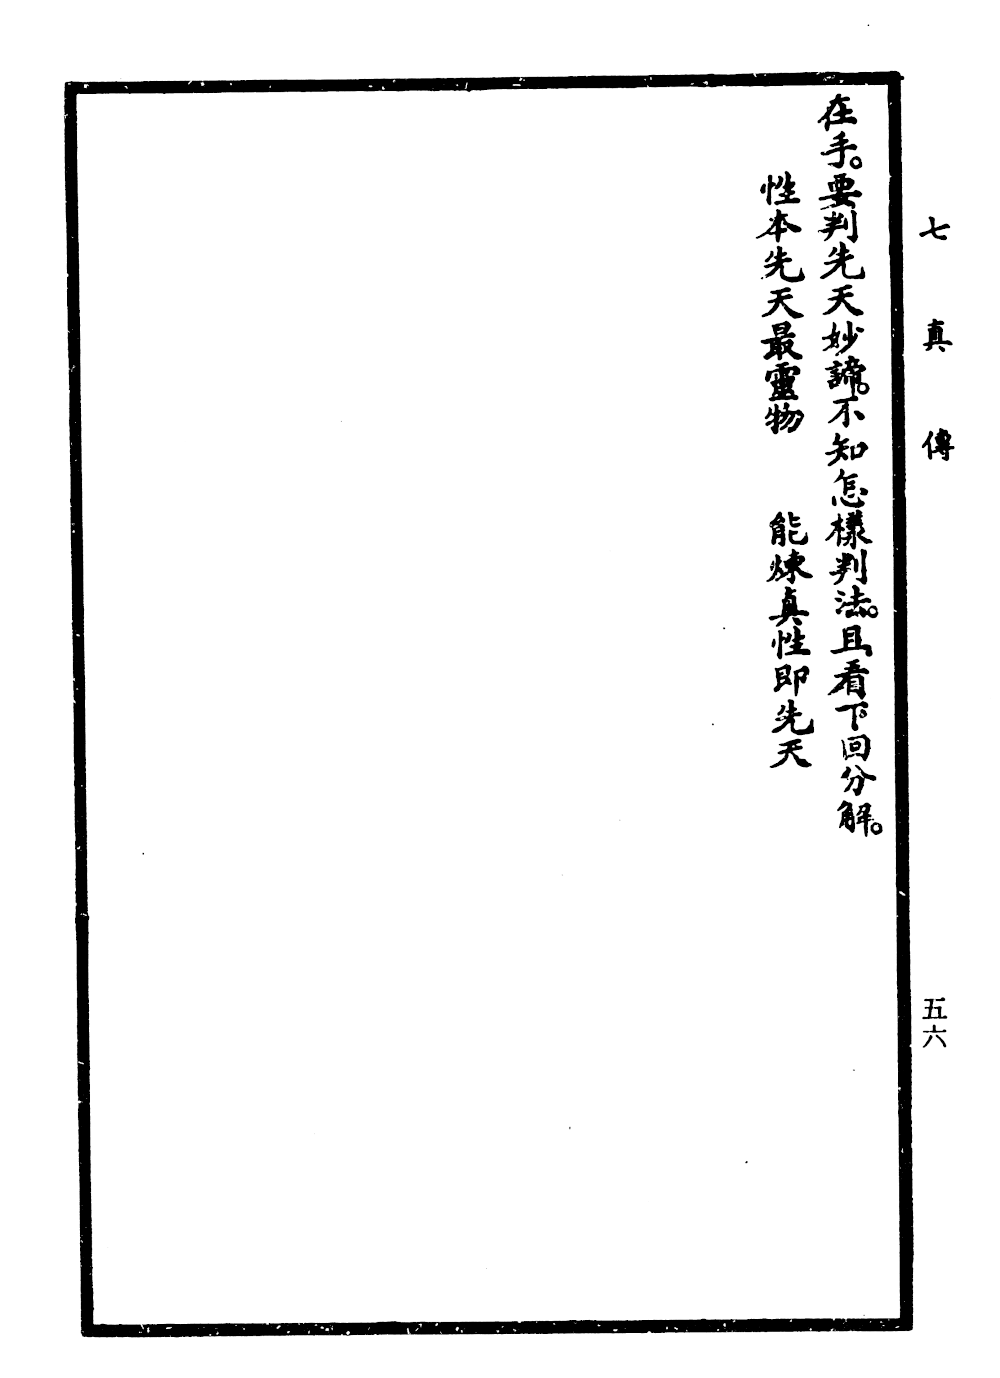 七真傳
五六
在手。要判先天妙諦。不知怎樣判法。且看下回分解。
性本先天最靈物　能煉真性即先天